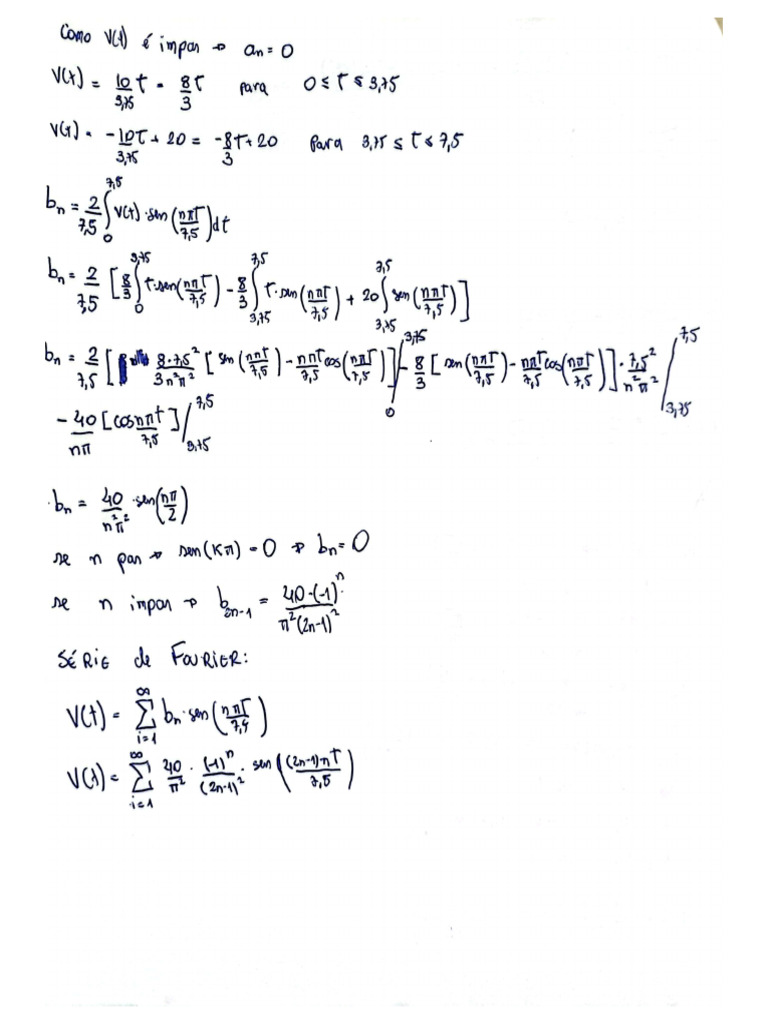 Como V(t) é impar → an = 0
V(t) = 10/3,75 t = 8t/3 para 0 ≤ t ≤ 3,75
V(t) = -10t/3,75 + 20 = -8t/3 + 20 para 3,75 ≤ t ≤ 7,5
bn = 2/7,5 ∫_0^7,5 V(t)·sen(nπt/7,5)dt
bn = 2/7,5 [8/3 ∫_0^3,75 t·sen(nπt/7,5) - 8/3 ∫_3,75^7,5 t·sen(nπt/7,5) + 20 ∫_3,75^7,5 sen(nπt/7,5)]
bn = 2/7,5 [8·7,5²/3n²π² [sen(nπt/7,5) - nπt/7,5 cos(nπt/7,5)] /_0^3,75 - 8/3 [sen(nπt/7,5) - nπt/7,5 cos(nπt/7,5)]·7,5²/n²π² /_3,75^7,5
- 40/nπ [cos nπt/7,5] /_3,75^7,5
bn = 40/n²π² · sen(nπ/2)
se n par → sen(Kπ) = 0 → bn = 0
se n impar → b2n-1 = 40·(-1)^n/π²(2n-1)²
SÉRIE de FOURIER:
V(t) = ∑_i=1^∞ bn·sen(nπt/7,5)
V(t) = ∑_i=1^∞ 40/π² · (-1)^n/(2n-1)² · sen((2n-1)πt/7,5)